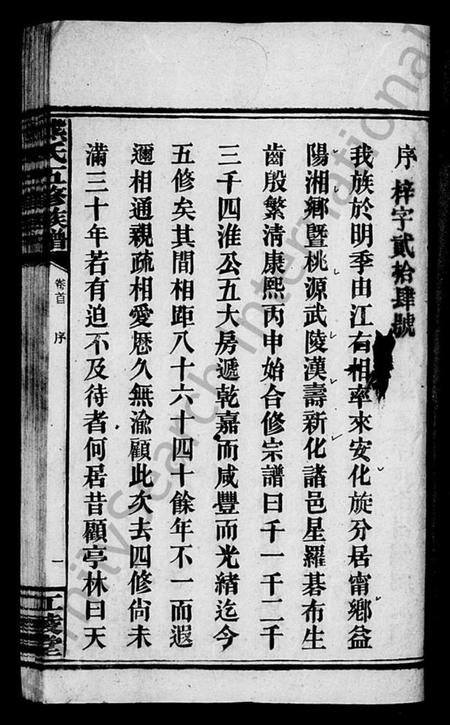 序 梓字貳拾肆號
我族於明季由江右相率來安化旋分居甯鄉益
陽湘鄉暨桃源武陵漢壽新化諸邑星羅碁布生
齒殷繁清康熙丙申始合修宗譜曰千一千二千
三千四淮公五大房遞乾嘉而咸豐而光緒迄今
五修矣其間相距八十六十四十餘年不一而遐
邇相通親疏相愛歷久無渝顧此次去四修尙未
滿三十年若有迫不及待者何居昔顧亭林曰天
氏五修族譜
卷首 序
一